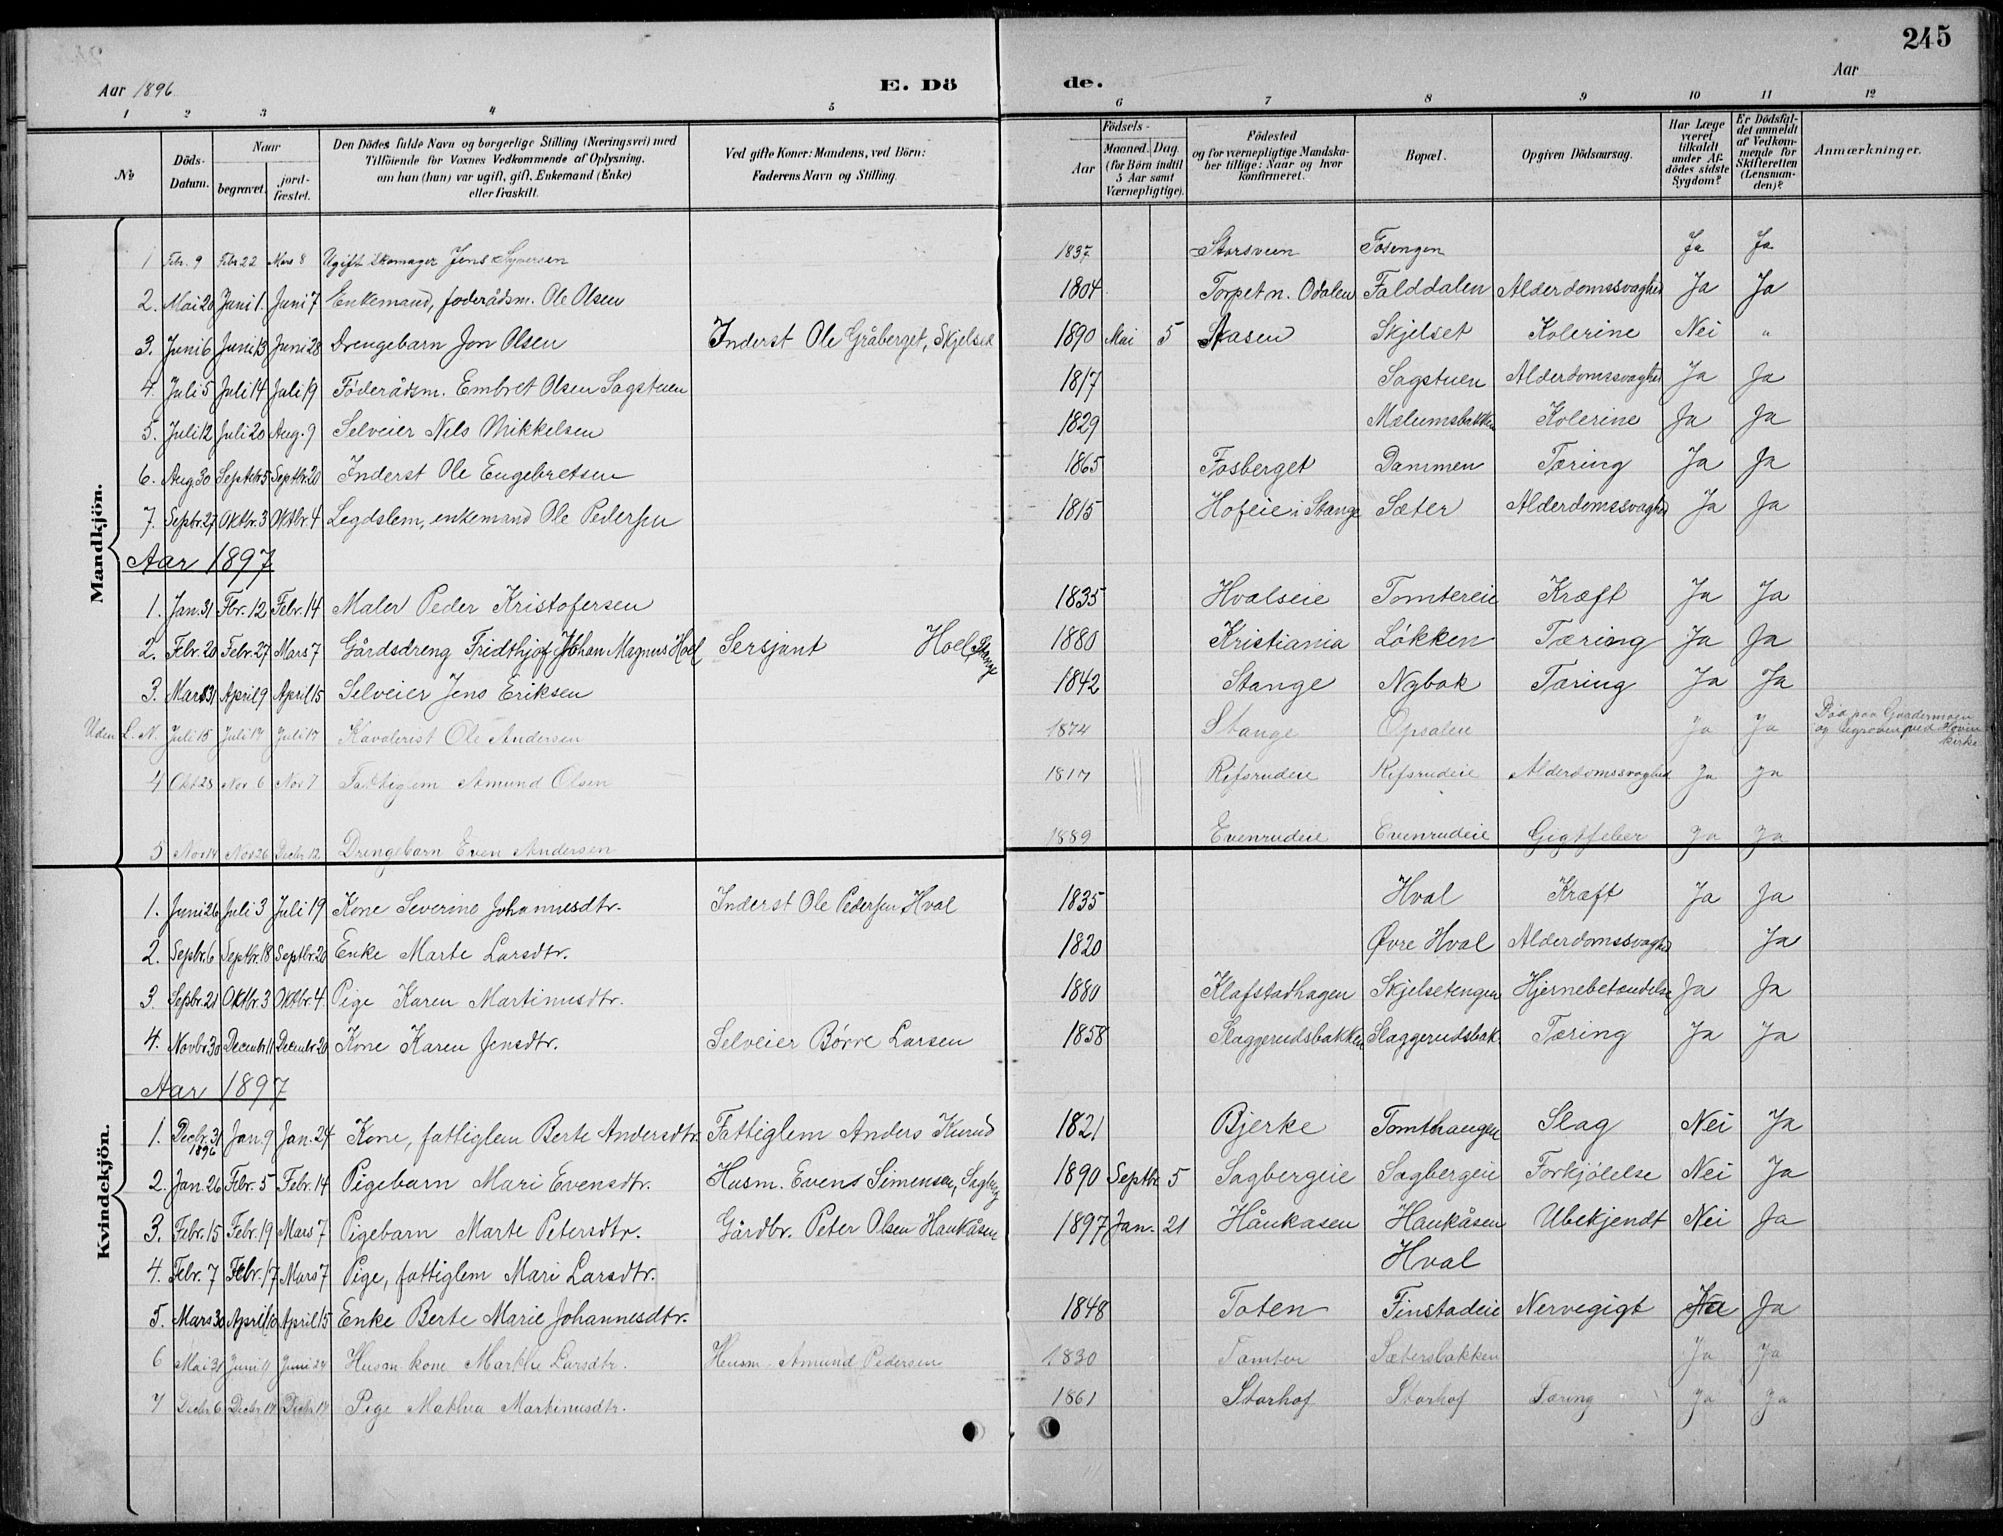 245
Aar 1896
E. Dö de.
Aar
1 2 3 4 5 6 7 8 9 10 11 12
No
Döds-Datum.
Naar
begravet.
jord-fæstet.
Den Dödes fulde Navn og borgerlige Stilling (Næringsvei) med
Tilföiende for Voxnes Vedkommende af Oplysning.
om han (hun) var ugift, gift, Enkemand (Enke)
eller fraskilt.
Ved gifte Koner: Mandens, ved Börn:
Faderens Navn og Stilling.
Födsels-
Aar
Maaned. Dag.
(for Börn indtil
5 Aar samt
Værnepligtige).
Födested
og for værnepligtige Mandska-
ber tillige: Naar og hvor
konfirmeret.
Bopæl.
Opgiven Dödsaarsag.
Har Læge
været
tilkaldt
under Af-
dödes sidste
Sygdom?
Er Dödsfal-
det anmeldt
af Vedkom-
mende for
Skifteretten
(Lensman-
den)?
Anmærkninger.
Mandkjön.
1 Febr. 9 Febr 22 Mars 8 Ugift Skomager Jens Syversen 1837 Storsveen Fosengen Ja Ja
2. Mai 20 Juni 1. Juni 7 Enkemand, foderådsm. Ole Olsen 1804 Torpet n. Odalen Falddalen Alderdomssvaghed Ja Ja
3. Juni 6 Juni 13 Juni 28 Drengebarn Jon Olsen Inderst Ole Gråberget, Skjelset 1890 Mai 5 Aasen Skjelset Kolerine Nei "
4. Juli 5 Juli 14 Juli 19 Föderådsm. Embret Olsen Sagstuen 1817 Sagstuen Alderdomssvaghed Ja Ja
5. Juli 12 Juli 20 Aug. 9 Selveier Nils Mikkelsen 1829 Mælumsbakken Kolerine Ja Ja
6. Aug. 30 Septbr. 5 Septbr. 20 Inderst Ole Engebretsen 1865 Fosberget Dammen Tæring Ja Ja
7. Sepbr. 27 Oktbr. 3 Oktbr. 4 Legdslem, enkemand Ole Pedersen 1815 Hofeie i Stange Sæter Alderdomssvaghed Ja Ja
Aar 1897
1. Jan. 31 Fbr. 12 Febr. 14 Maler Peder Kristofersen 1835 Hvalseie Tomtereie Kræft Ja Ja
2. Febr. 20 Febr. 27 Mars 7 Gårdsdreng Fridthjof Johan Magnus Hoel Sersjant Hoel Stange 1880 Kristiania Løkken Tæring Ja Ja
3. Mars 31 April 9 April 15 Selveier Jens Eriksen 1842 Stange Nybak Tæring Ja Ja
Uden L. N. Juli 15 Juli 17 Juli 17 Kavalerist Ole Andersen 1874 Stange Opsalen Ja Ja Død paa Gardermoen
og begraven ved Hovin
kirke
4 Okt 28 Nov 6 Nov 7 Fattiglem Amund Olsen 1817 Refsrudeie Refsrudeie Alderdomssvaghed Ja Ja
5 Nov 14 Nov 26 Decbr. 12 Drengebarn Even Andersen 1889 Evenrudeie Evenrudeie Gigtfeber Ja Ja
Kvindekjön.
1. Juni 26 Juli 3 Juli 19 Kone Severine Johannesdtr. Inderst Ole Pedersen Hval 1835 Hval Kræft Ja Ja
2. Sepbr. 6 Septbr. 18 Septbr. 20 Enke Marte Larsdtr. 1820 Øvre Hval Alderdomssvaghed Ja
3. Sepbr. 21 Oktbr. 3 Oktbr. 4. Pige Karen Martinusdtr. 1880 Klafstadhagen Skjelsetengen Hjernebetændelse Ja Ja
4. Novbr. 30 Decembr 11 Decembr 20 Kone Karen Jensdtr. Selveier Børre Larsen 1858 Slaggerudsbakken Slaggerudsbak. Tæring Ja Ja
Aar 1897
1. Decbr. 31 1896 Jan. 9 Jan. 24 Kone, fattiglem Berte Andersdtr. Fattiglem Anders Kurud 1821 Bjerke Tomthaugen Slag Nei Ja
2. Jan. 26 Febr. 5 Febr. 14 Pigebarn Mari Evensdtr. Husm. Evens Simensen, Sagberg 1890 Septbr. 5 Sagbergeie Sagbergeie Forkjølelse Nei Ja
3. Febr. 15 Febr. 19 Mars 7 Pigebarn Marte Petersdtr. Gårdbr. Peter Olsen Haukåsen 1897 Jan. 21 Håukasen Haukåsen Ubekjendt Nei Ja
4. Febr. 7 Febr. 17 Mars 7 Pige, fattiglem Mari Larsdtr. Hval
5. Mars 30 April 10 April 15 Enke Berte Marie Johannesdtr. 1848 Toten Finstadeie Nervegigt Ja Ja
6 Mai 31 Juni 11 Juni 24 Husm. kone Marthe Larsdtr. Husm. Amund Pedersen 1830 Tomter Sætersbakken Ja Ja
7 Decbr 6 Decbr 17 Decbr 17 Pige Mathea Martinusdtr. 1861 Storhof Storhof Tæring Ja Ja